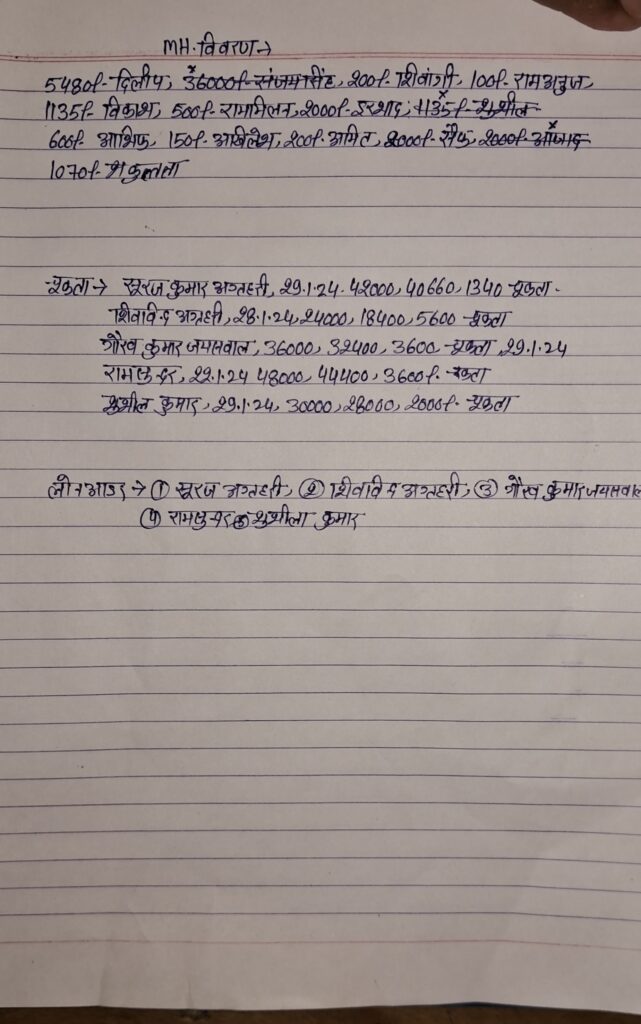 MH. विवरण →
5480/- दिलीप, 36000/- संजय सिंह, 200/- शिवांगी, 100/- रामअनुज,
1135/- विकाश, 500/- राममिलन, 2000/- इरशाद, 1135/- सुशील
600/- आशिफ, 150/- अखिलेश, 200/- अमित, 2000/- सैफ, 2000/- औजाद
1070/- शकुन्तला
चुकता → सूरज कुमार अग्रहरी, 29.1.24. 42000, 40660, 1340 चुकता.
शिवाविन्द अग्रहरी, 28.1.24, 24000, 18400, 5600 चुकता
गौरव कुमार जयसवाल, 36000, 32400, 3600 चुकता, 29.1.24
रामसुन्दर, 22.1.24 48000, 44400, 3600/- चुकता
सुशील कुमार, 29.1.24, 30000, 28000, 2000/- चुकता
लोन आउट → ① सूरज अग्रहरी, ② शिवाविन्द अग्रहरी, ③ गौरव कुमार जयसवाल
④ रामसुन्दर ⑤ सुशीला कुमार